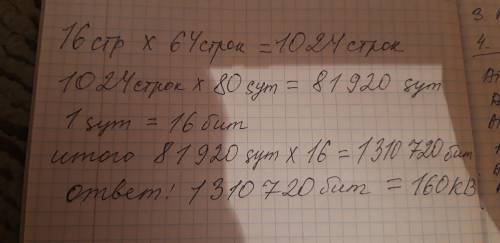 16 стр x 64 строк = 1024 строк
1024 строк x 80 зут = 81920 зут
1 зут = 16 бит
итого 81920 зут x 16 = 1310720 бит
ответ! 1310720 бит = 160 кВ
3.
4.